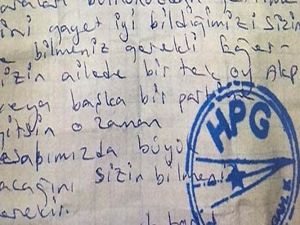 ini gayet iyi bildiğimizi sizin
bilmeniz gerekli Eğer
sizin ailede bir tek oy Akp
veya başka bir
gitsin o zaman
hesabımızda büyük
sizin bilmeniz
gerekir.
HPG